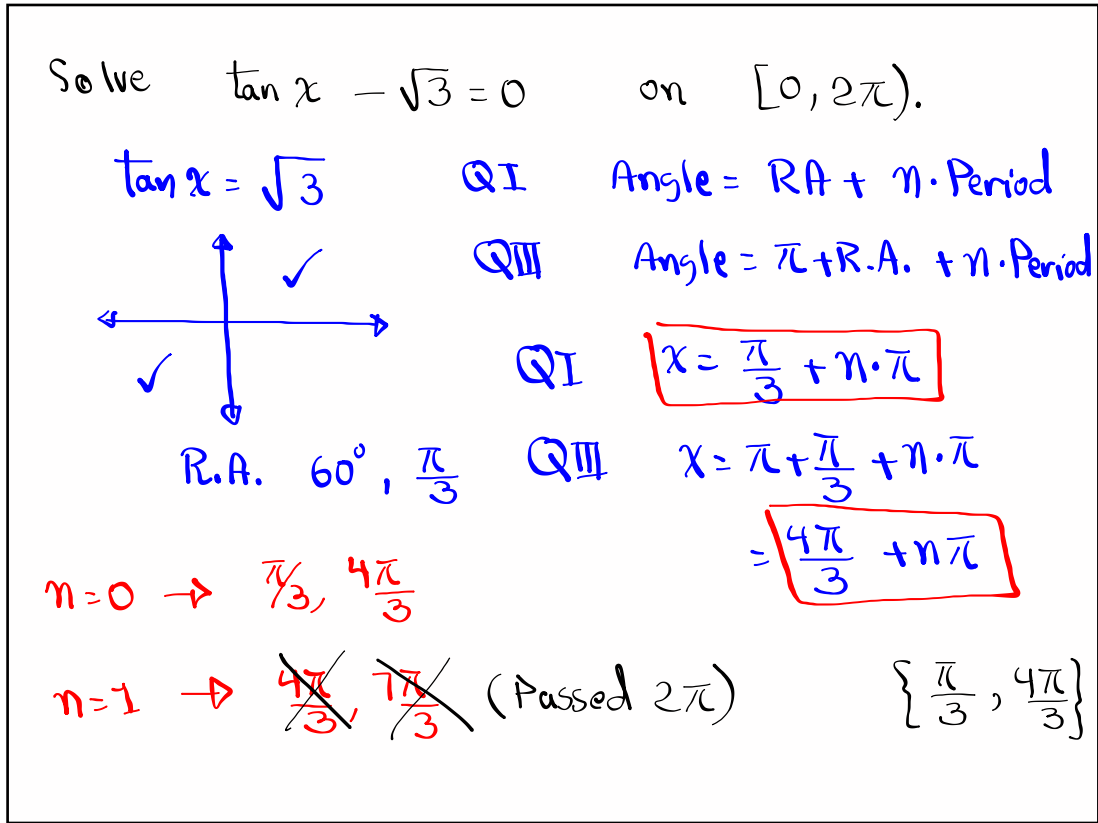 Solve tan x - √3 = 0 on [0, 2π).
tan x = √3 QI Angle = RA + n·Period
QIII Angle = π + R.A. + n·Period
QI x = π/3 + n·π
R.A. 60°, π/3 QIII x = π + π/3 + n·π
= 4π/3 + nπ
n=0 → π/3, 4π/3
n=1 → 4π/3, 7π/3 (Passed 2π) {π/3, 4π/3}